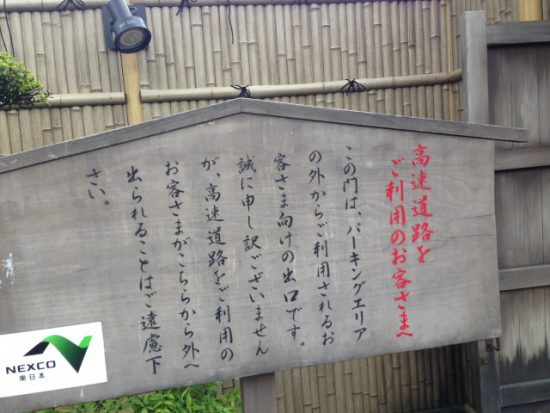 高速道路を
ご利用のお客さまへ
この門は、パーキングエリア
の外からご利用されるお
客さま向けの出口です。
誠に申し訳ございません
が、高速道路をご利用の
お客さまがこちらから外へ
出られることはご遠慮下
さい。
NEXCO
東日本